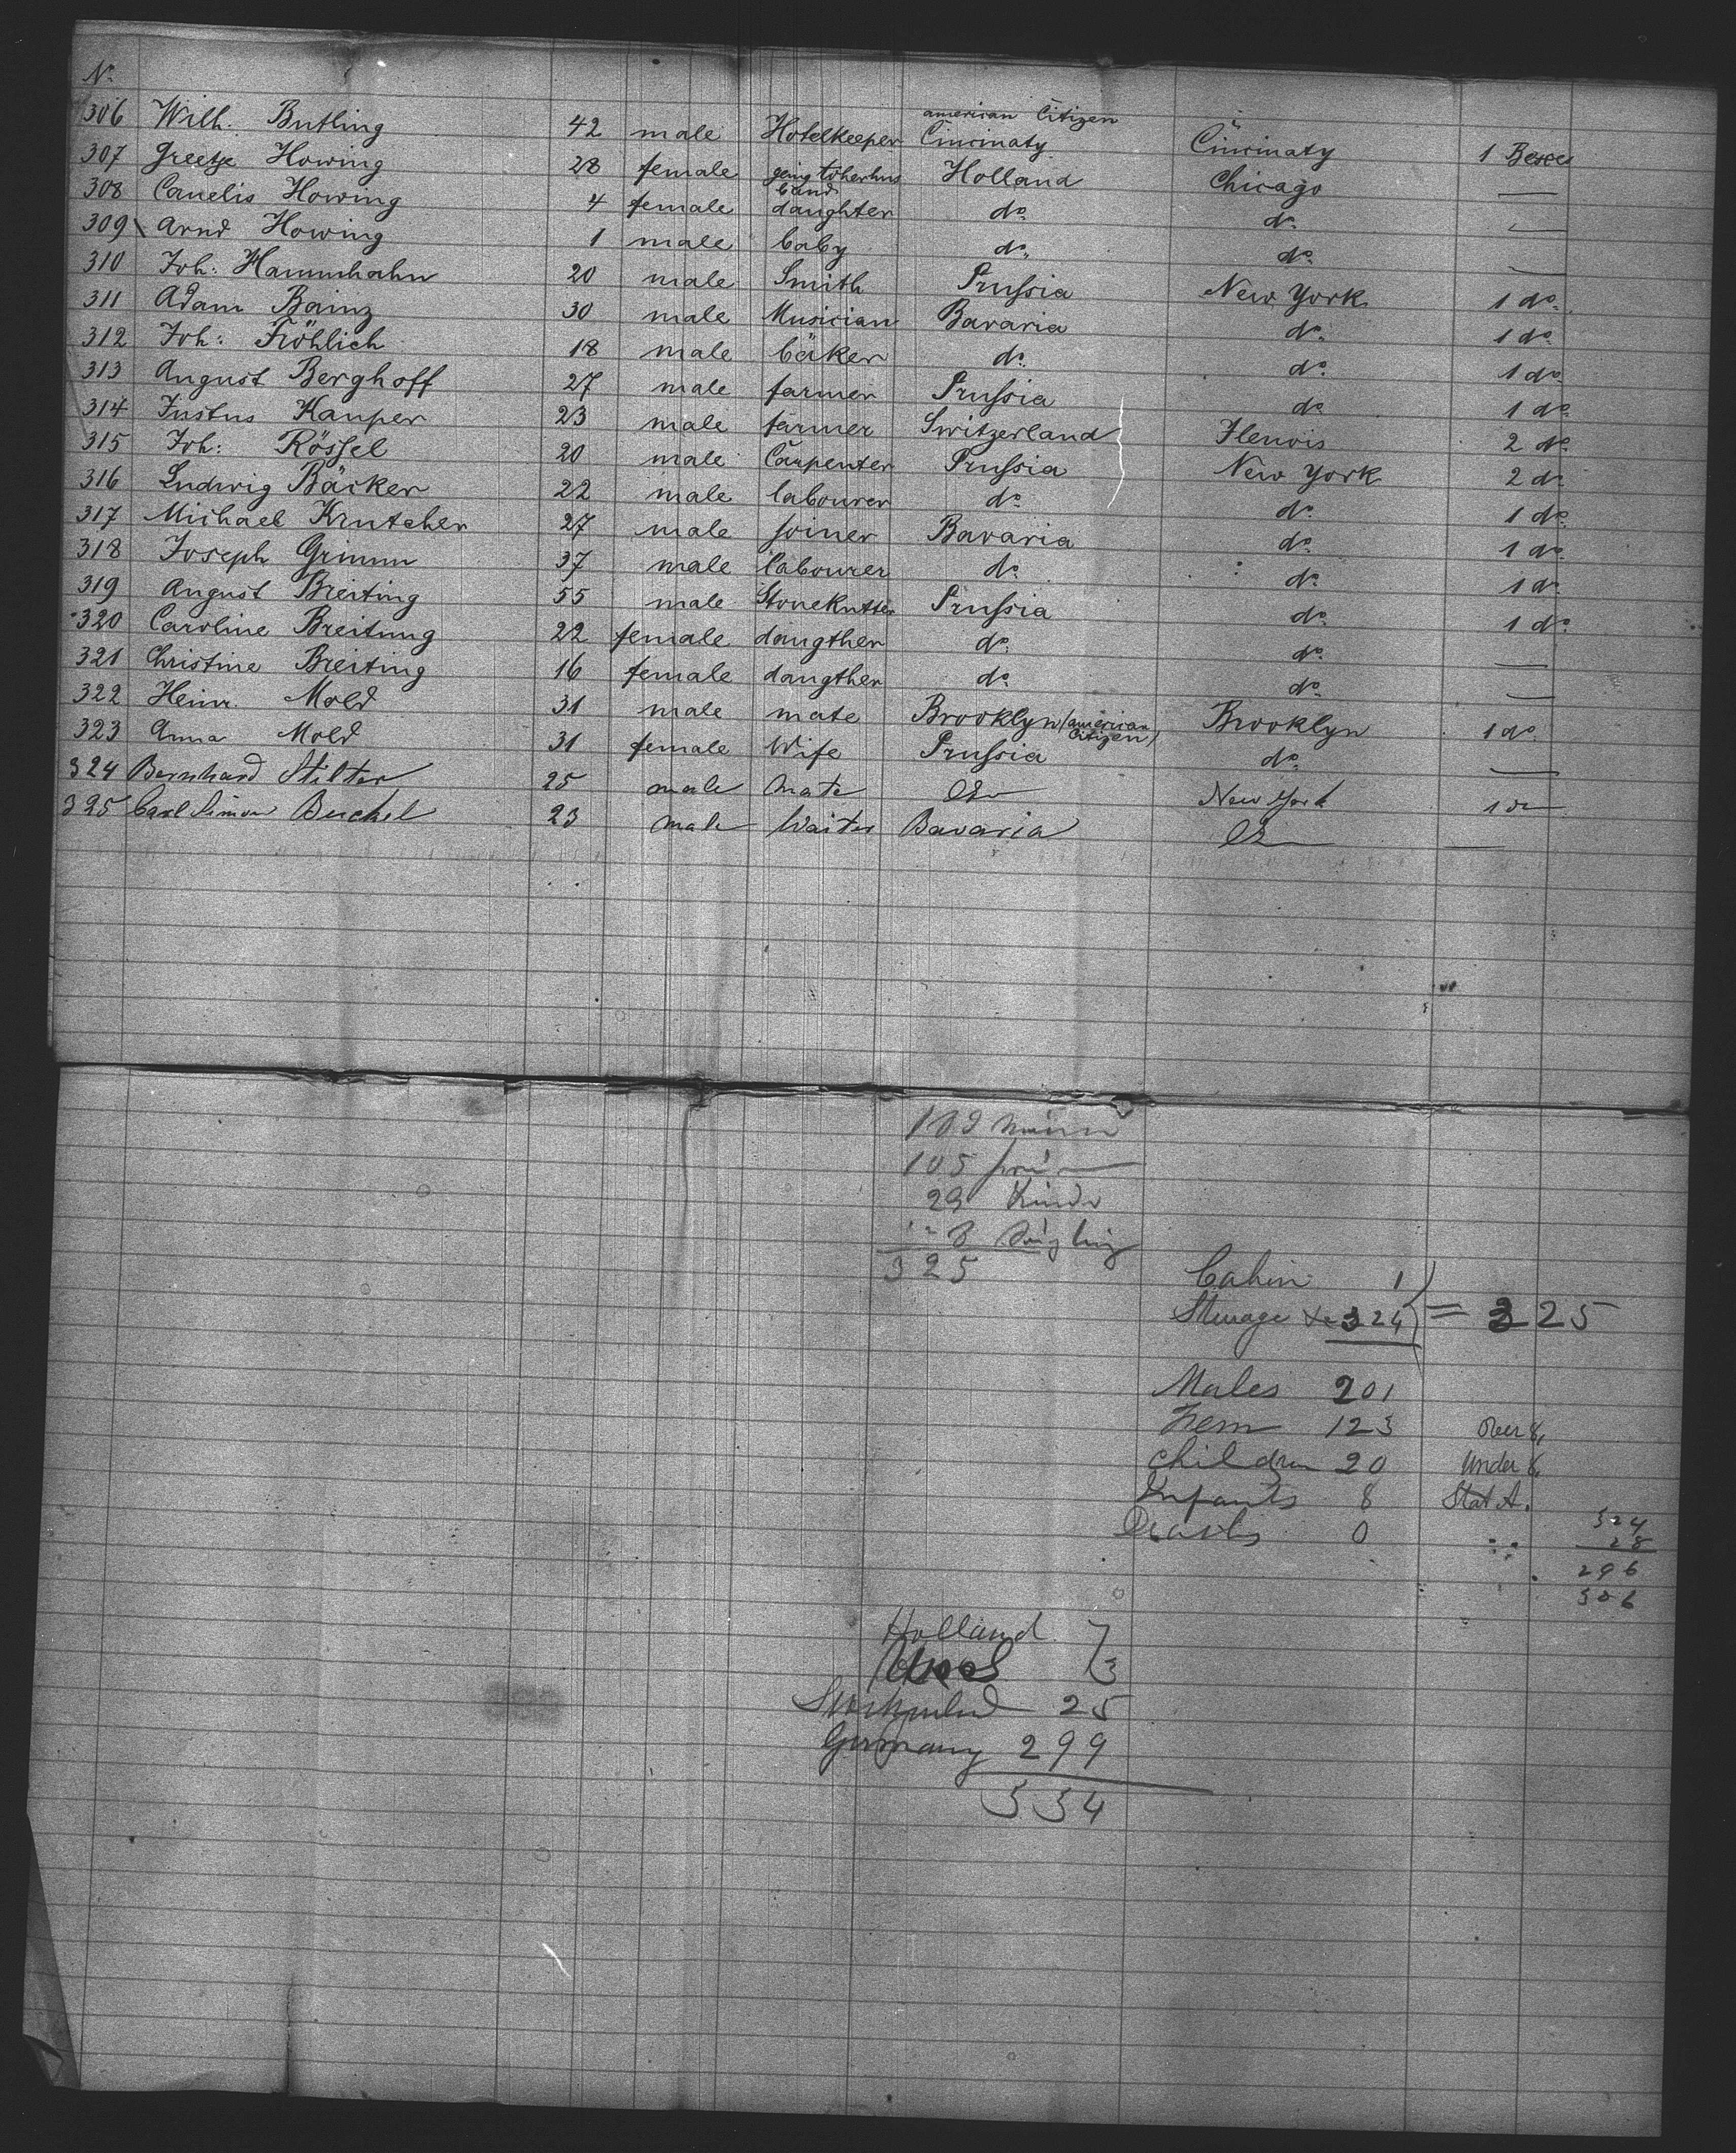 No.
306 Wilh. Butling 42 male Hotelkeeper american Citizen Cincinaty Cincinaty 1 Boxes
307 Greetje Howing 28 female going to her husband Holland Chicago —
308 Canelis Howing 4 female daughter do. do. —
309 Arnd Howing 1 male baby do. do. —
310 Joh: Hammhahn 20 male Smith Prussia New York 1 do.
311 Adam Bainz 30 male Musician Bavaria do. 1 do.
312 Joh: Fröhlich 18 male bäker do. do. 1 do.
313 August Berghoff 27 male farmer Prussia do. 1 do.
314 Justus Kanper 23 male farmer Switzerland Ilenois 2 do.
315 Joh: Rössel 20 male Carpenter Prussia New York 2 do.
316 Ludwig Bäcker 22 male labourer do. do. 1 do.
317 Michael Krutcher 27 male joiner Bavaria do. 1 do.
318 Joseph Grimm 37 male labourer do. do. 1 do.
319 August Breiting 55 male Stonekutter Prussia do. 1 do.
320 Caroline Breitung 22 female daugther do. do. —
321 Christine Breiting 16 female daugther do. do. —
322 Heinr. Mold 31 male mate Brooklyn (american Citizen) Brooklyn 1 do.
323 Anna Mold 31 female Wife Prussia do. —
324 Bernhard Stilter 25 male Mate Do New York 1 do
325 Carl Simon Buchel 23 male Waiter Bavaria Do —
105
29 Kinder
8 Säugling
325
Cabin 1
Steerage 324 = 325
Males 201
Fem 123 over 8,
children 20 under 8,
Infants 8 Stat A.
Deaths 0
324
28
296
306
Holland
3
Switzerland 25
Germany 299
334